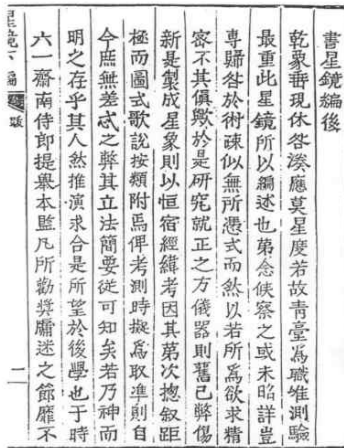 書星鏡編後
乾象垂現休咎湊應莫星度若故靑臺爲職惟測驗
最重此星鏡所以編述也第念候察之或未昭詳豈
專歸咎於術疎似無所憑式而然以若所爲欲求精
密不其俱歟於是硏究就正之方儀器則舊已弊傷
新是製成星象則以恒宿經緯考因其第次摠叙距
極而圖式歌說按類附焉俾考測時擬爲取準剏自
今庶無差忒之弊其立法簡要從可知矣若乃神而
明之存乎其人然推演求合是所望於後學也于時
六一齋南侍郎提擧本監凡所勸奬牖迷之節靡不
星鏡 編 跋 二